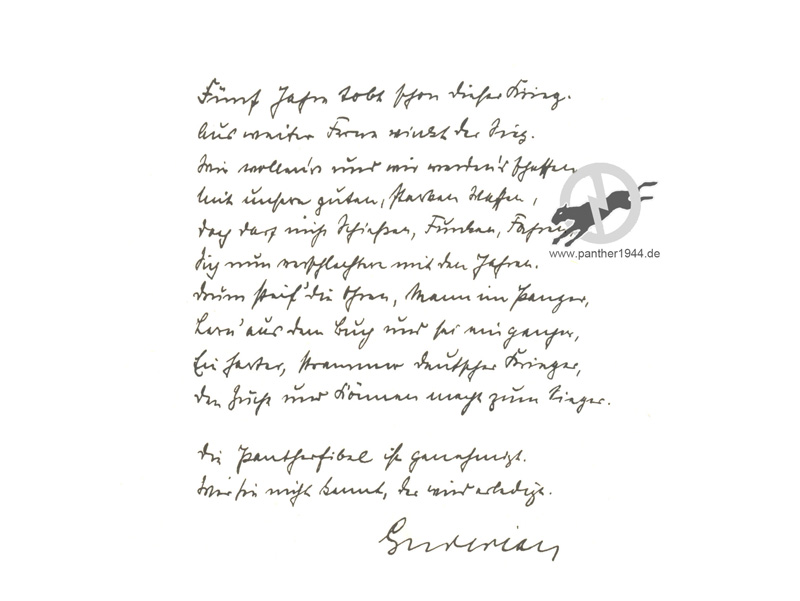 Fünf Jahre tobt schon dieser Krieg.
Aus weiter Ferne winkt der Sieg.
Wir wollen's und wir werden's schaffen
Mit unsern guten, starken Waffen,
doch darf nicht Schießen, Funken, Fahren
Sich nun verschlechtern mit den Jahren.
Drum steif' die Ohren, Mann im Panzer,
Lern' aus dem Buch und sei ein ganzer,
Ein harter, strammer deutscher Krieger,
Den Zucht und Können macht zum Sieger.
Die Pantherfibel ist genehmigt.
Wer sie nicht kennt, der wird erledigt.
Guderian
www.panther1944.de